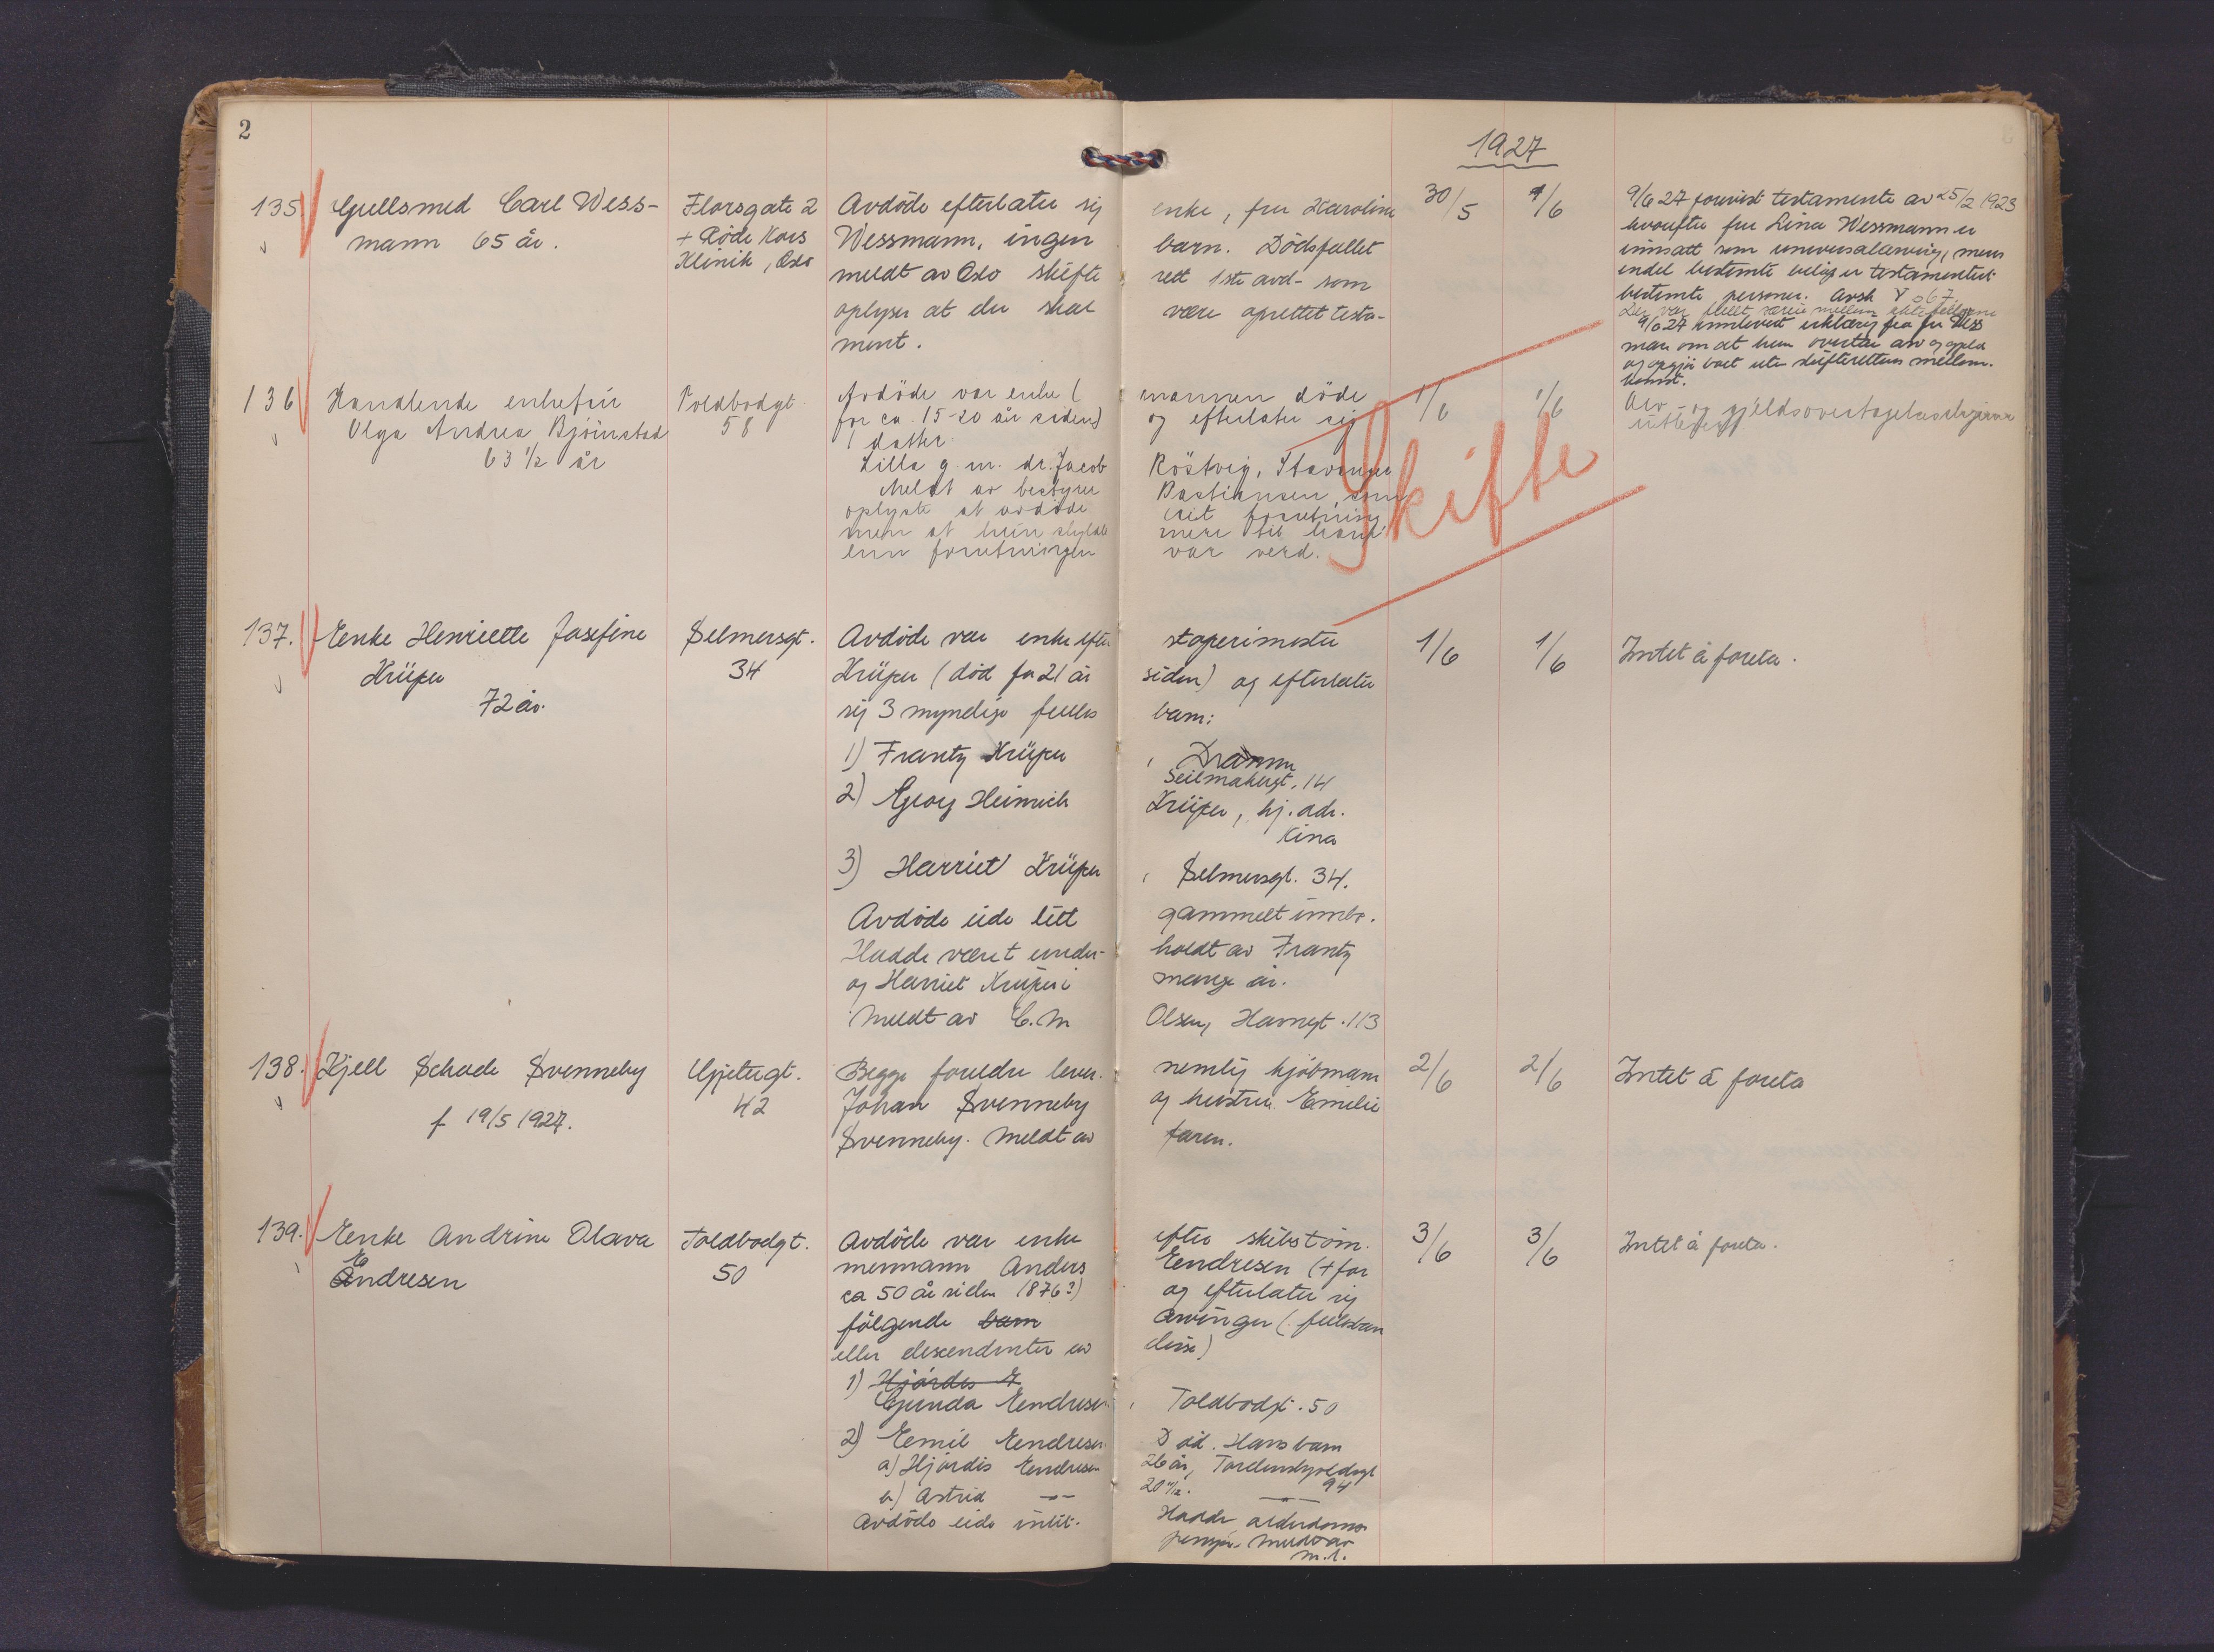 2
1927
135 Gullsmed Carl Wess- Florsgate 2 Avdöde efterlater sig enke, fru Karoline 30/5 4/6 9/6 27 forevist testamente av 25/2 1923
mann 65 år. + Röde Kors Wessmann, ingen barn. Dödsfallet hvorefter fru Lina Wessmann er
Klinik, Oslo meldt av Oslo skifte rett 1ste avd- som innsatt som universalarving, mens
endel bestemte beløp er testamentert
oplyser at der skal være oprettet testa- bestemte personer.
ment. Der var fullt særeie mellem ektefellerne
9/6 27 innlevert erklæring fra fru Wess
mann om at hun overtar arv og gjeld
og opgjør boet uten skifterettens mellem-
komst.
136 Handlende enkefru Toldbodgt. Avdöde var enke ( mannen döde 1/6 1/6 Arv- og gjeldsovertagelseserklæringen
Olga Andrea Bjørnstad 58 for ca. 15-20 år siden) og efterlater sig utlevert
63 1/2 år 1 datter.
Lilla g. m. dr. Jacob Röstvig, Stavanger
Meldt av bestyrer Bastiansen, som
oplyste at avdöde forretning
men at hun skyldte mere til
enn forretningen var verd.
Skifte
137. Enke Henriette Josefine Selmersgt. Avdöde var enke efter stoperimester 1/6 1/6 Intet å foreta.
Krüper 34 Krüper (död for 21 år siden) og efterlater
72 år. sig 3 myndige fulls barn:
1) Frantz Krüper , Drammen
Seilmakergt. 14
2) Georg Heinrich Krüper, hj. adr.
Kina
3) Harriet Krüper , Selmersgt. 34.
Avdöde eide litt gammelt innbo.
Hadde været under- holdt av Frantz
og Harriet Krüper i mange år.
Meldt av C. M Olsen, Havnegt. 113
138. Kjell Schade Svenneby Gjetergt. Begge foreldre lever. nemlig kjöbmann 2/6 2/6 Intet å foreta
f 19/5 1927. 42 Johan Svenneby og hustru Emilie
Svenneby. Meldt av faren.
139. Enke Andrine Olava Toldbodgt. Avdöde var enke efter skibstöm- 3/6 3/6 Intet å foreta.
Endresen 50 mermann Anders Endresen (+ for
ca 50 år siden 1876?) og efterlater sig
fölgende barn arvinger (fullsbarn
eller descendenter av disse)
1) Hjördis E
Gunda Endresen , Toldbodgt. 50
2) Emil Endresen Död. Hans barn
a) Hjördis Endresen 26 år, Tordenskjoldsgt
94
b) Astrid —"— 20 1/2. —"—
Avdöde eide intet. Hadde alderdoms-
pensjon. Meldt av